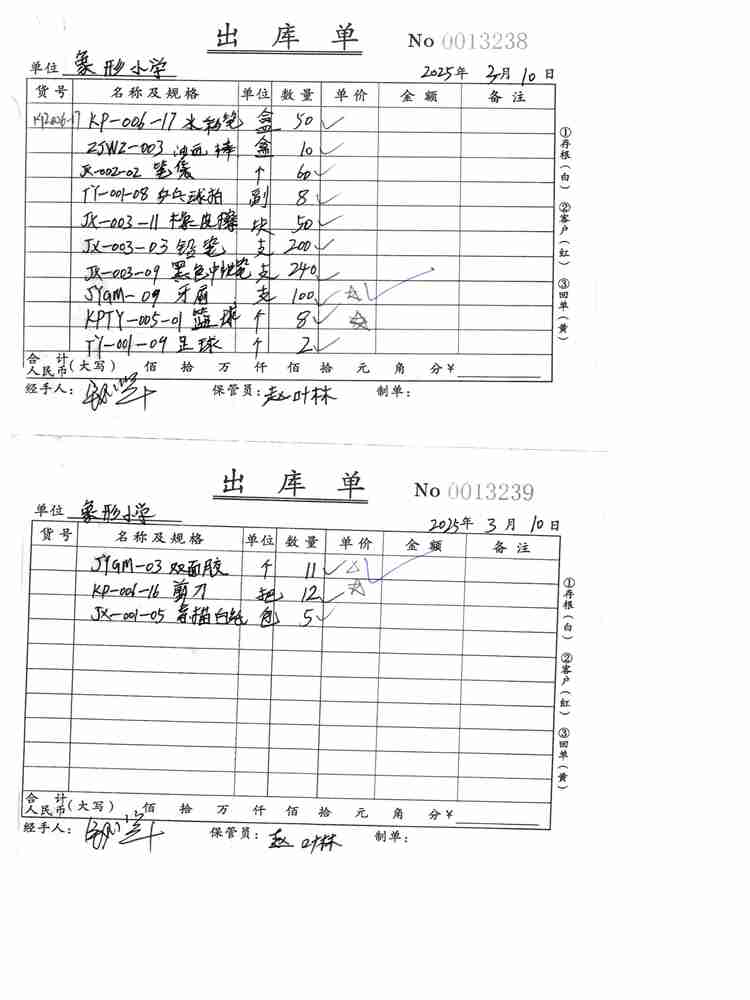 出 库 单 No 0013238
单位 象形小学 2025年 3月 10日
货号 名称及规格 单位 数量 单价 金额 备注
KP-006-17 水粉笔 盒 50
ZJWZ-003 油画棒 盒 10
JX-002-02 笔袋 个 60
TY-001-08 乒乓球拍 副 8
JX-003-11 橡皮擦 块 50
JX-003-03 铅笔 支 200
JX-003-09 黑色中性笔 支 240
JYGM-09 牙刷 支 100
KPTY-005-01 篮球 个 8
TY-001-09 足球 个 2
合计人民币(大写) 佰 拾 万 仟 佰 拾 元 角 分 ¥
经手人: 保管员: 赵叶林 制单:
①存根(白) ②客户(红) ③回单(黄)
出 库 单 No 0013239
单位 象形小学 2025年 3月 10日
货号 名称及规格 单位 数量 单价 金额 备注
JYGM-03 双面胶 个 11
KP-006-16 剪刀 把 12
JX-001-05 素描白纸 包 5
合计人民币(大写) 佰 拾 万 仟 佰 拾 元 角 分 ¥
经手人: 保管员: 赵叶林 制单:
①存根(白) ②客户(红) ③回单(黄)